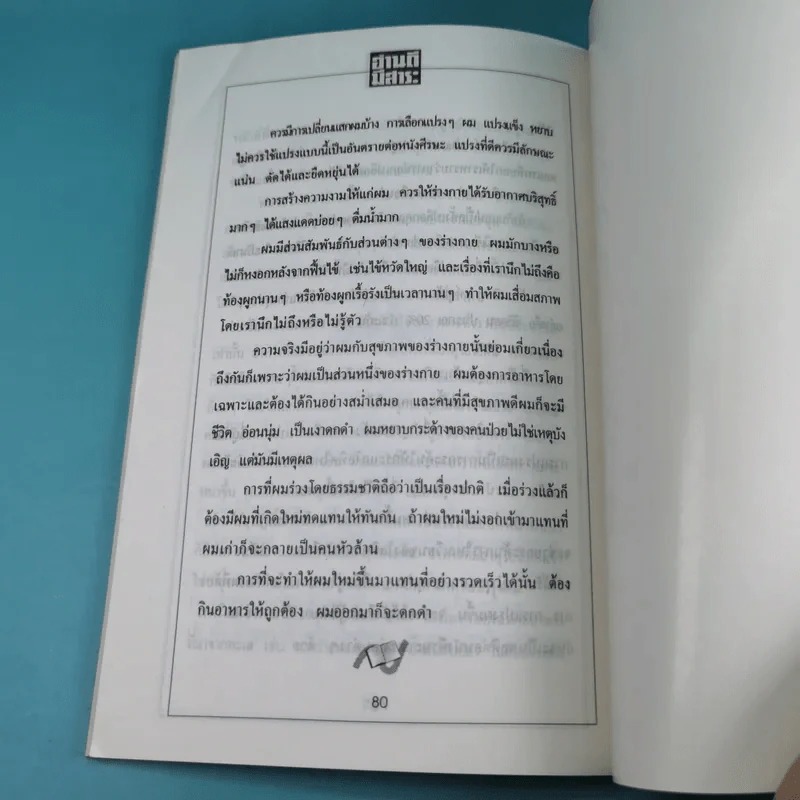 อ่านดี
มีสาระ
ควรมีการเปลี่ยนแสกผมบ้าง การเลือกแปรงๆ ผม แปรงแข็ง หยาบ
ไม่ควรใช้แปรงแบบนี้เป็นอันตรายต่อหนังศีรษะ แปรงที่ดีควรมีลักษณะ
แน่น ดัดได้และยืดหยุ่นได้
การสร้างความงามให้แก่ผม ควรให้ร่างกายได้รับอากาศบริสุทธิ์
มากๆ ได้แสงแดดบ่อยๆ ดื่มน้ำมาก
ผมมีส่วนสัมพันธ์กับส่วนต่างๆ ของร่างกาย ผมมักบางหรือ
ไม่ก็หงอกหลังจากฟื้นไข้ เช่นไข้หวัดใหญ่ และเรื่องที่เรานึกไม่ถึงคือ
ท้องผูกนานๆ หรือท้องผูกเรื้อรังเป็นเวลานานๆ ทำให้ผมเสื่อมสภาพ
โดยเรานึกไม่ถึงหรือไม่รู้ตัว
ความจริงมีอยู่ว่าผมกับสุขภาพของร่างกายนั้นย่อมเกี่ยวเนื่อง
ถึงกันก็เพราะว่าผมเป็นส่วนหนึ่งของร่างกาย ผมต้องการอาหารโดย
เฉพาะและต้องได้กินอย่างสม่ำเสมอ และคนที่มีสุขภาพดีผมก็จะมี
ชีวิต อ่อนนุ่ม เป็นเงาดกดำ ผมหยาบกระด้างของคนป่วยไม่ใช่เหตุบัง
เอิญ แต่มันมีเหตุผล
การที่ผมร่วงโดยธรรมชาติถือว่าเป็นเรื่องปกติ เมื่อร่วงแล้วก็
ต้องมีผมที่เกิดใหม่ทดแทนให้ทันกัน ถ้าผมใหม่ไม่งอกเข้ามาแทนที่
ผมเก่าก็จะกลายเป็นคนหัวล้าน
การที่จะทำให้ผมใหม่ขึ้นมาแทนที่อย่างรวดเร็วได้นั้น ต้อง
กินอาหารให้ถูกต้อง ผมออกมาก็จะดกดำ
80